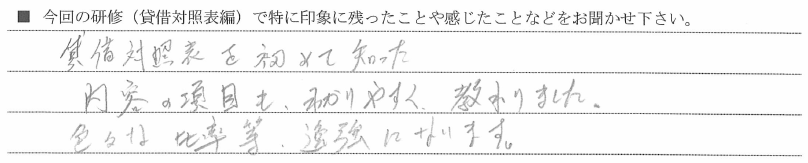 ■ 今回の研修（貸借対照表編）で特に印象に残ったことや感じたことなどをお聞かせ下さい。
貸借対照表を初めて知った
内容の項目も、わかりやすく、教わりました。
色々な比率等、勉強になります。